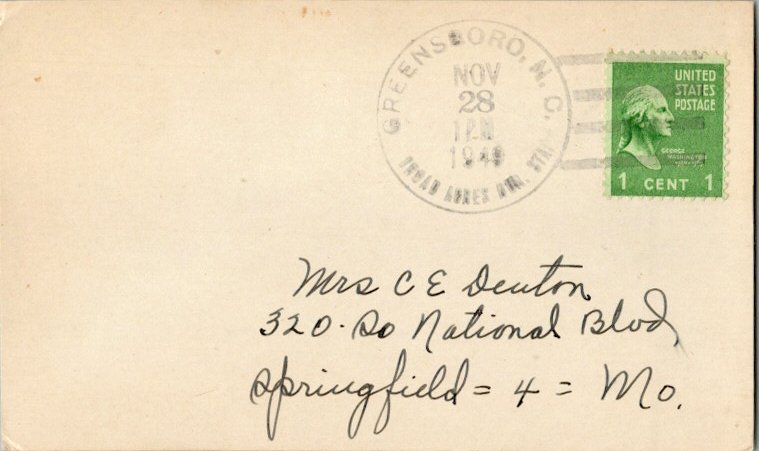 GREENSBORO, N. C.
NOV
28
1 PM
1949
BROAD ACRES RUR. STA.
UNITED
STATES
POSTAGE
GEORGE
WASHINGTON
1 CENT 1
Mrs C E Denton
320 · So National Blvd,
Springfield = 4 = Mo.